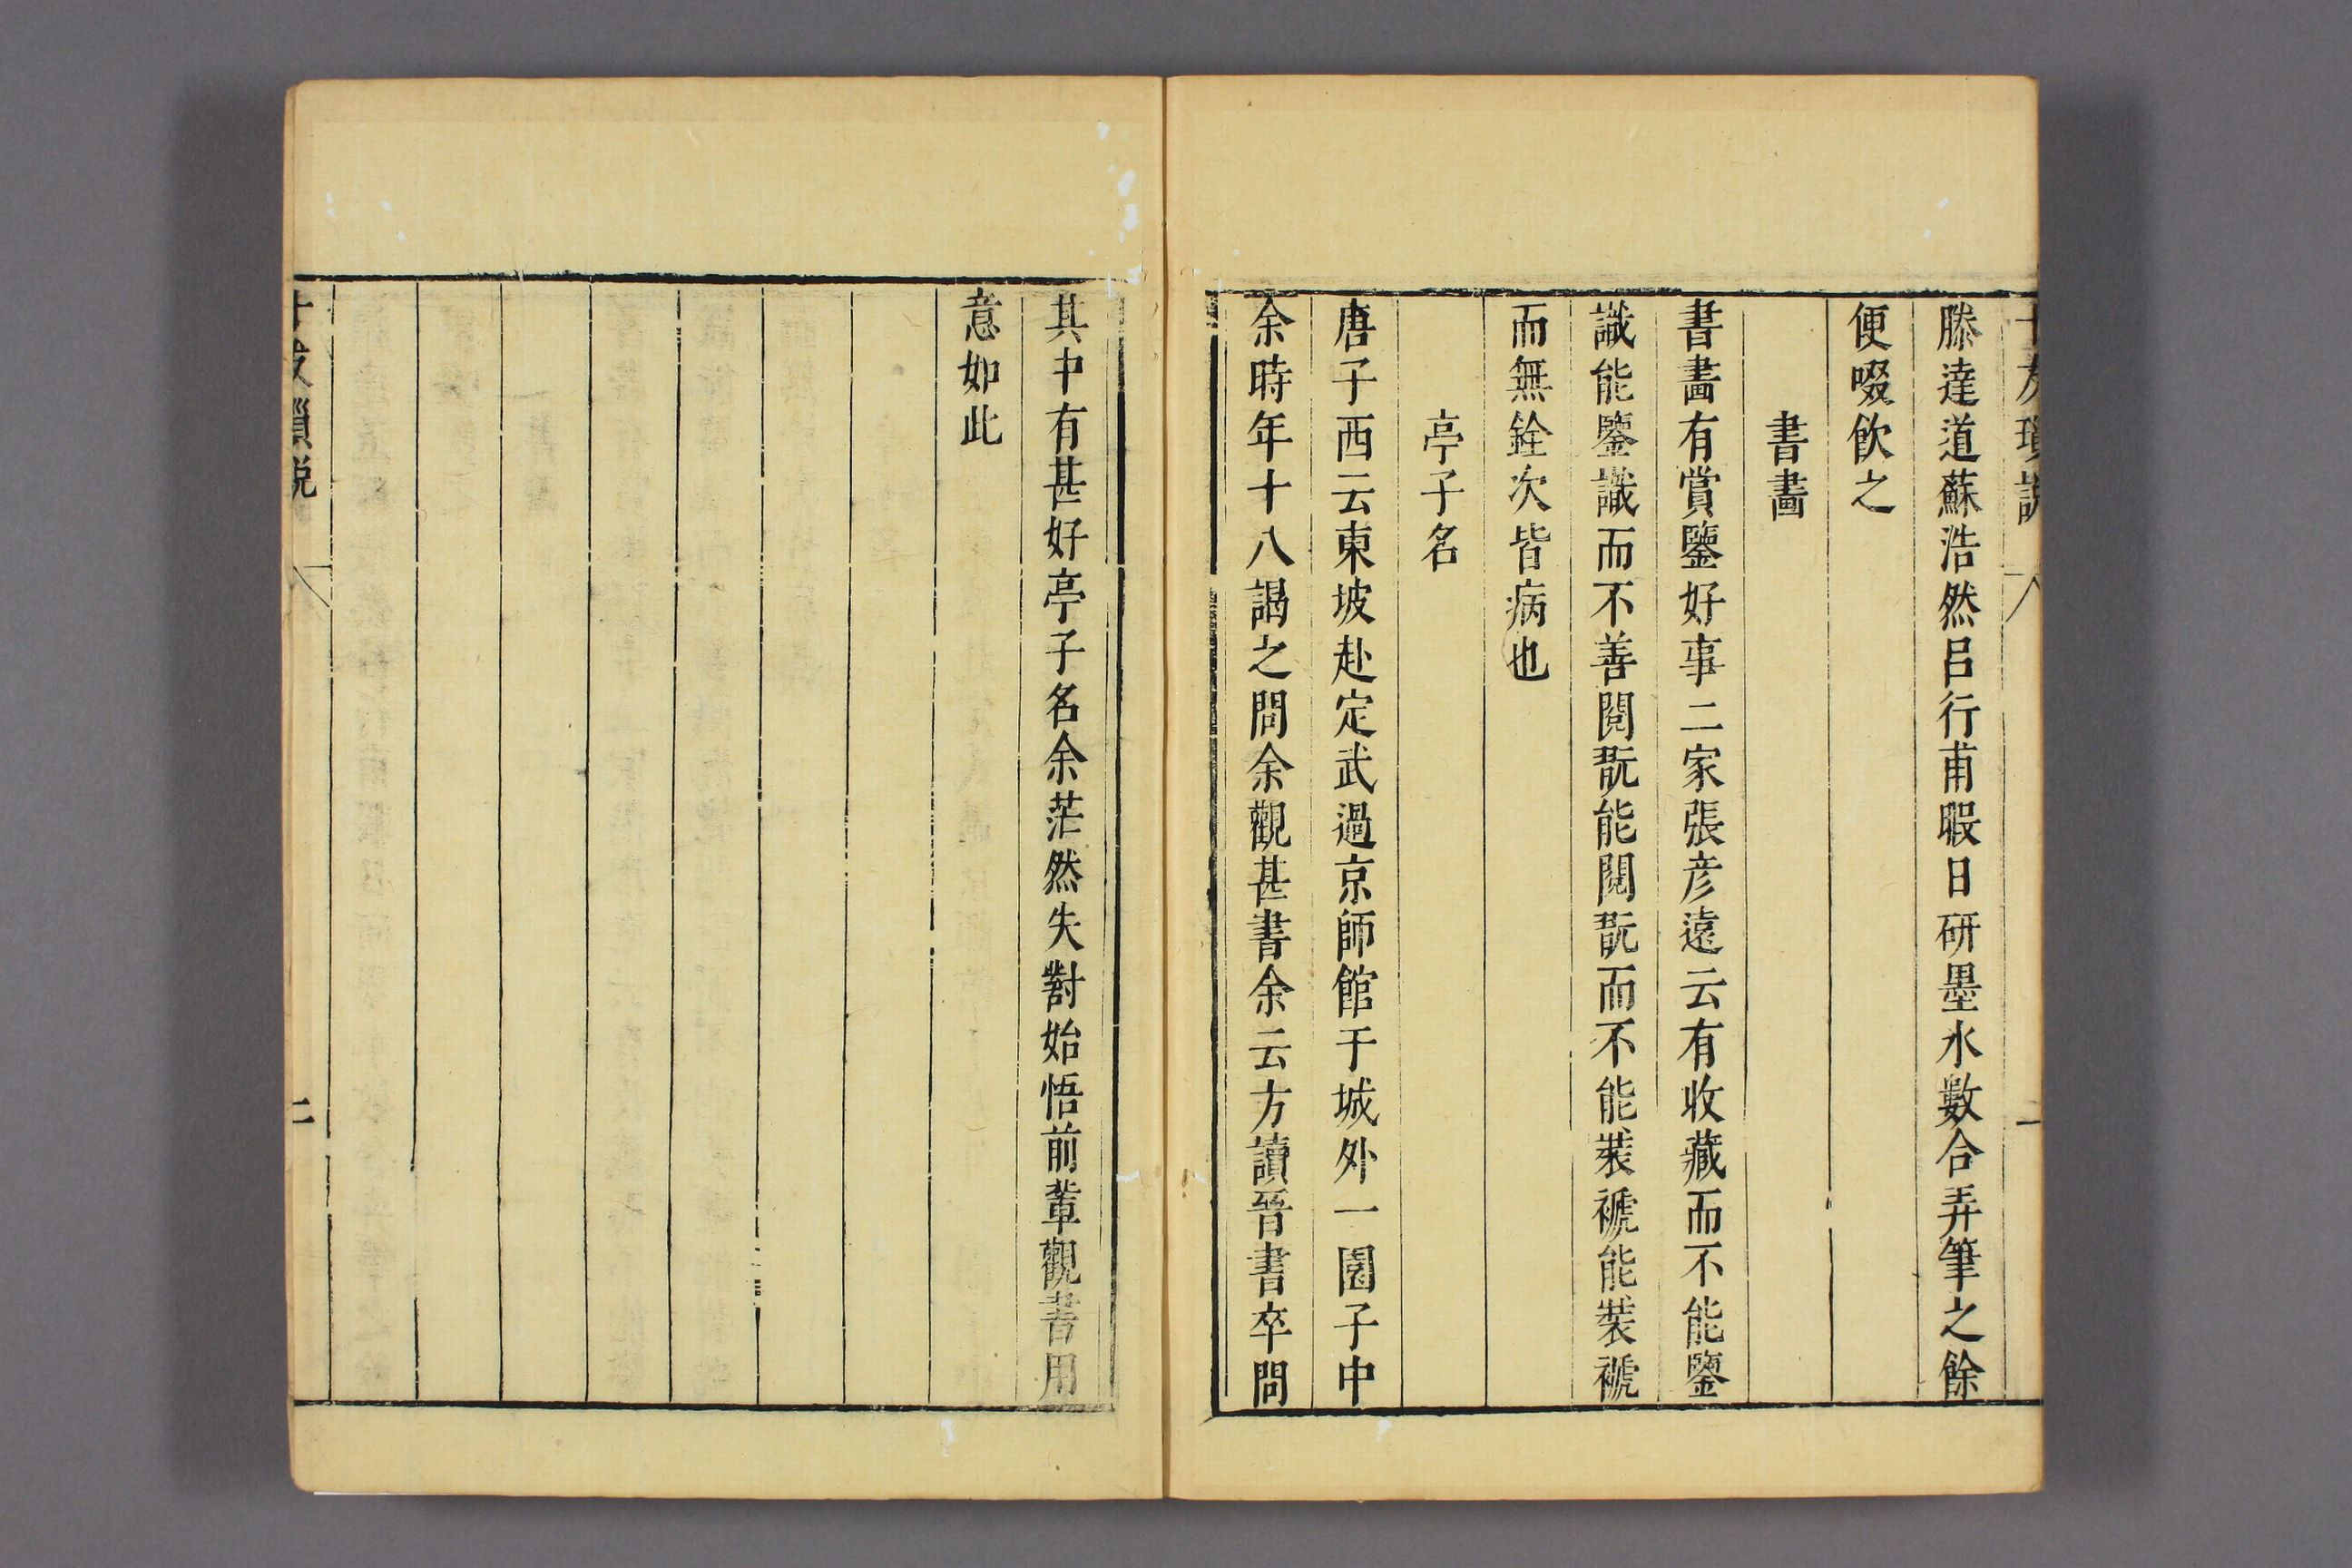 滕達道蘇浩然呂行甫暇日研墨水數合弄筆之餘
便啜飲之
書畫
書畫有賞鑒好事二家張彦遠云有收藏而不能鑒
識能鑒識而不善閱翫能閱翫而不能裝褫能裝褫
而無銓次皆病也
亭子名
唐子西云東坡赴定武過京師館于城外一園子中
余時年十八謁之問余觀甚書余云方讀晉書卒問
其中有甚好亭子名余茫然失對始悟前輩觀書用
意如此
二